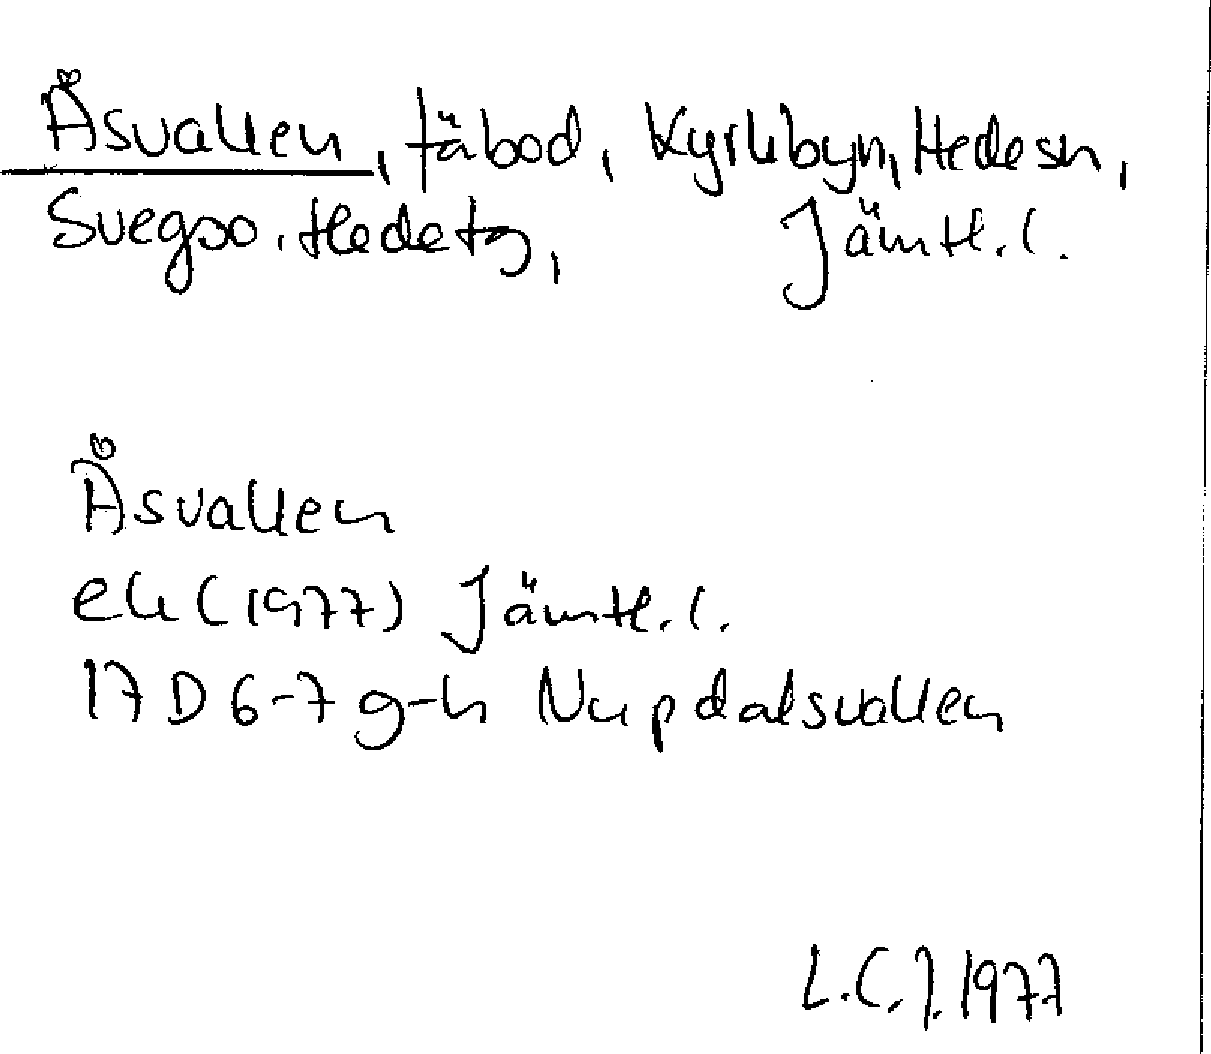 Åsvallen, fäbod, Kyrkbyn, Hede sn,
Svegs o. Hede tg, Jämtl. l.
Åsvallen
ek (1977) Jämtl. l.
17 D 6-7 g-h Nupdalsvallen
L.C.J. 1977